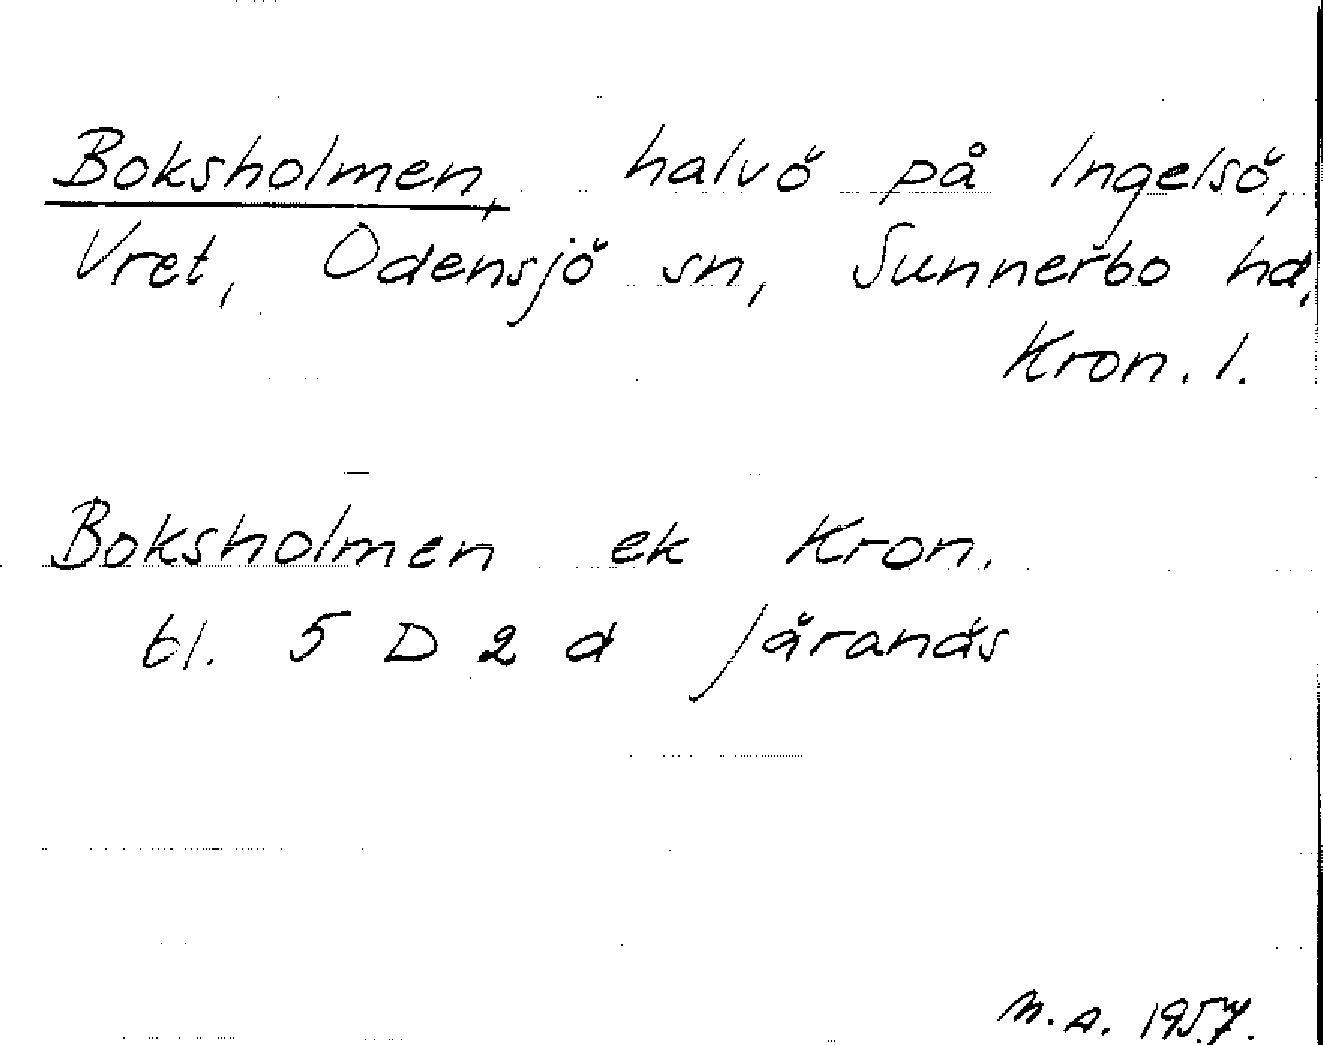 Boksholmen, halvö på Ingelsö,
Vret, Odensjö sn, Sunnerbo hd,
Kron. l.
Boksholmen ek Kron.
bl. 5 D 2 d Järanäs
M.A. 1957.